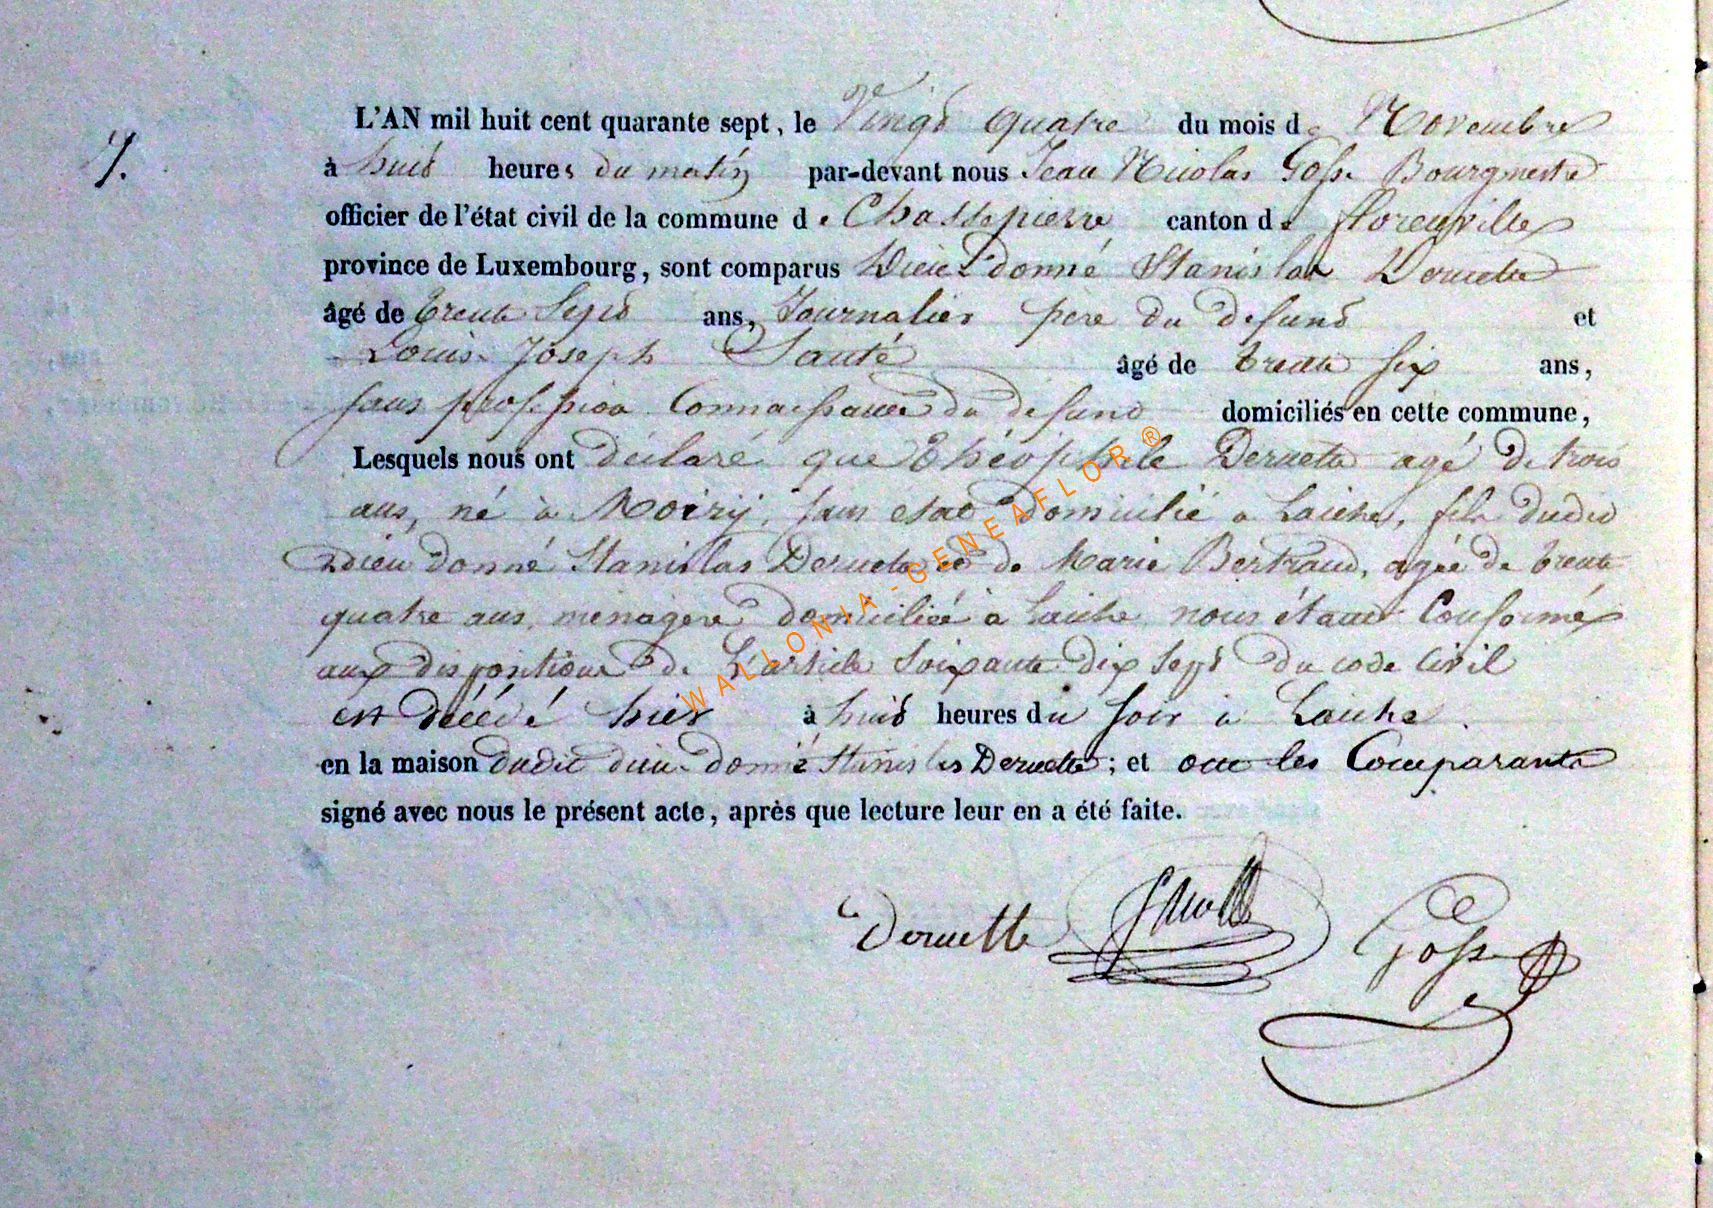 L'AN mil huit cent quarante sept, le Vingt quatre du mois de Novembre
7.
à huit heures du matin par-devant nous Jean Nicolas Gosse Bourgmestre
officier de l'état civil de la commune de Chassepierre canton de florenville
province de Luxembourg, sont comparus Dieu donné Stanislas Deruette
âgé de trente Sept ans, Journalier père du defunt et
Louis Joseph Santé âgé de trente six ans,
sans profession Connaissance du defunt domiciliés en cette commune,
Lesquels nous ont déclaré que Théophile Deruette agé de trois
ans, né à Moiry, sans etat domicilié a Laiche, fils dudit
Dieu donné Stanislas Deruette et de Marie Bertrand, agée de trente
quatre ans, menagere domiciliée à Laiche nous étant Conformé
aux dispositions de L'article Soixante dix Sept du code Civil
est décédé hier à huit heures du soir à Laiche.
en la maison dudit dieu donné Stanislas Deruette; et ont les Comparants
signé avec nous le présent acte, après que lecture leur en a été faite.
Deruette Gosse
WALLONIA-GENEAFLOR®